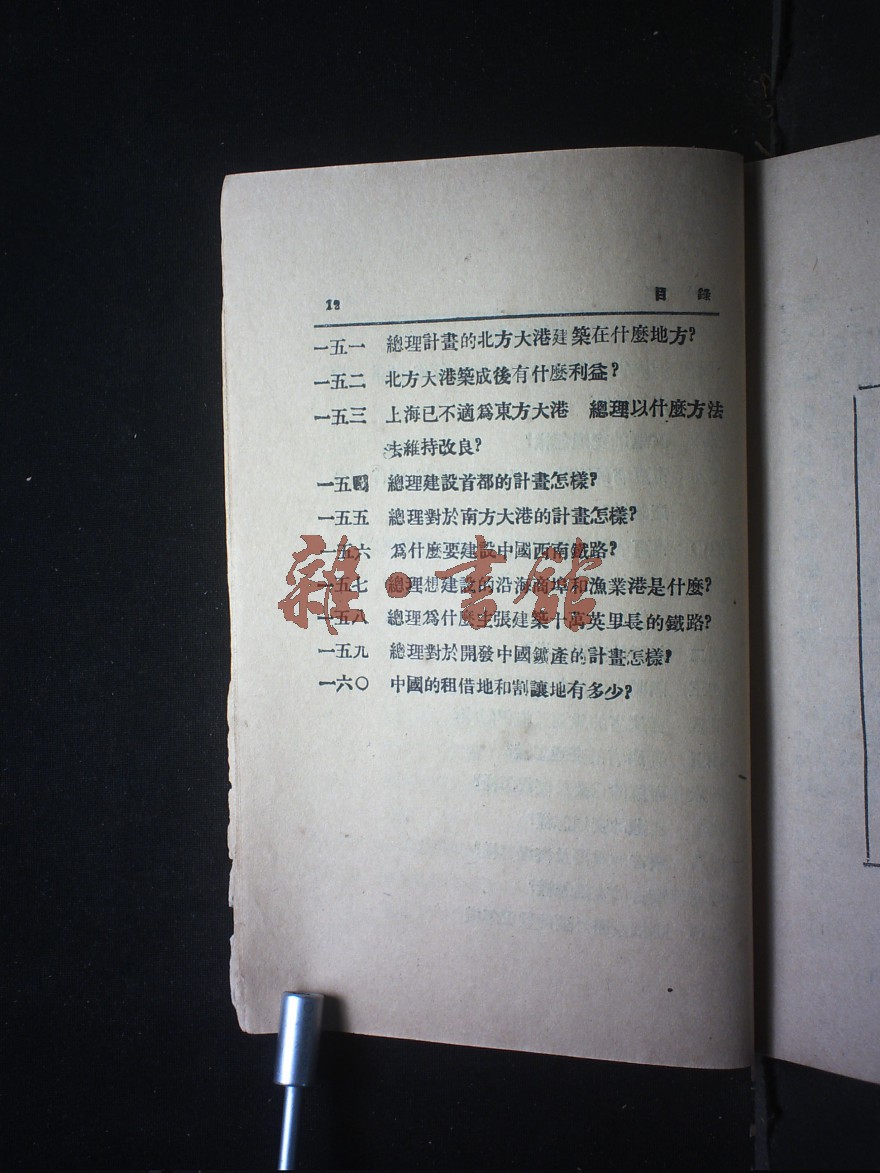 12 目錄
一五一 總理計畫的北方大港建築在什麼地方?
一五二 北方大港築成後有什麼利益?
一五三 上海已不適爲東方大港 總理以什麼方法
法維持改良?
一五四 總理建設首都的計畫怎樣?
一五五 總理對於南方大港的計畫怎樣?
一五六 爲什麼要建設中國西南鐵路?
一五七 總理想建設的沿海商埠和漁業港是什麼?
一五八 總理爲什麼主張建築十萬英里長的鐵路?
一五九 總理對於開發中國鑛產的計畫怎樣?
一六〇 中國的租借地和割讓地有多少?
雜·書館